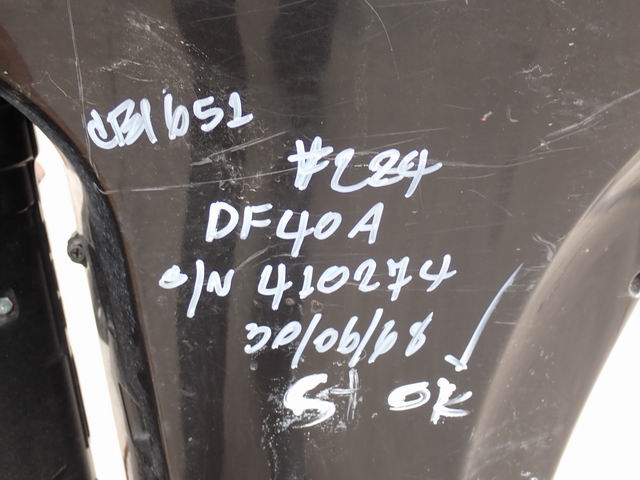 CB1651
#224
DF40A
S/N 410274
30/06/68
St OK